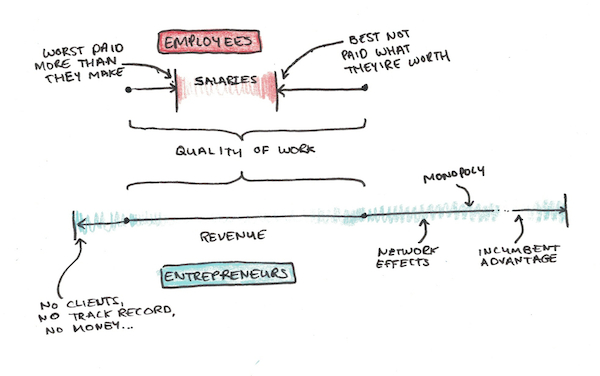 EMPLOYEES
WORST PAID
MORE THAN
THEY MAKE
BEST NOT
PAID WHAT
THEY'RE WORTH
SALARIES
QUALITY OF WORK
MONOPOLY
REVENUE
NETWORK
EFFECTS
INCUMBENT
ADVANTAGE
ENTREPRENEURS
NO CLIENTS,
NO TRACK RECORD,
NO MONEY...